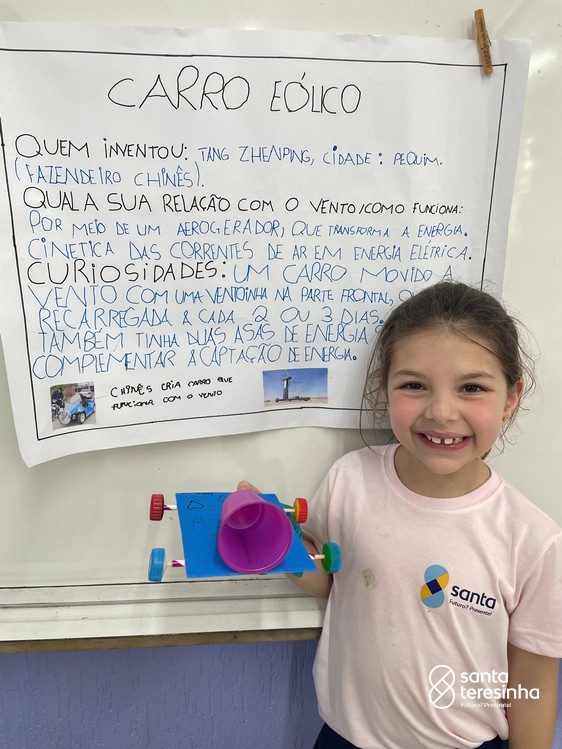 CARRO EÓLICO
QUEM INVENTOU: TANG ZHENPING, CIDADE: PEQUIM.
(FAZENDEIRO CHINÊS).
QUAL A SUA RELAÇÃO COM O VENTO/COMO FUNCIONA:
POR MEIO DE UM AEROGERADOR, QUE TRANSFORMA A ENERGIA.
CINETICA DAS CORRENTES DE AR EM ENERGIA ELÉTRICA.
CURIOSIDADES: UM CARRO MOVIDO A
VENTO COM UMA VENTOINHA NA PARTE FRONTAL,
RECARREGADA A CADA 2 OU 3 DIAS.
TAMBÉM TINHA DUAS ASAS DE ENERGIA
COMPLEMENTAR A CAPTAÇÃO DE ENERGIA.
CHINÊS CRIA CARRO QUE
FUNCIONA COM O VENTO
santa
Futuro? Presente!
santa
teresinha
Futuro? Presente!